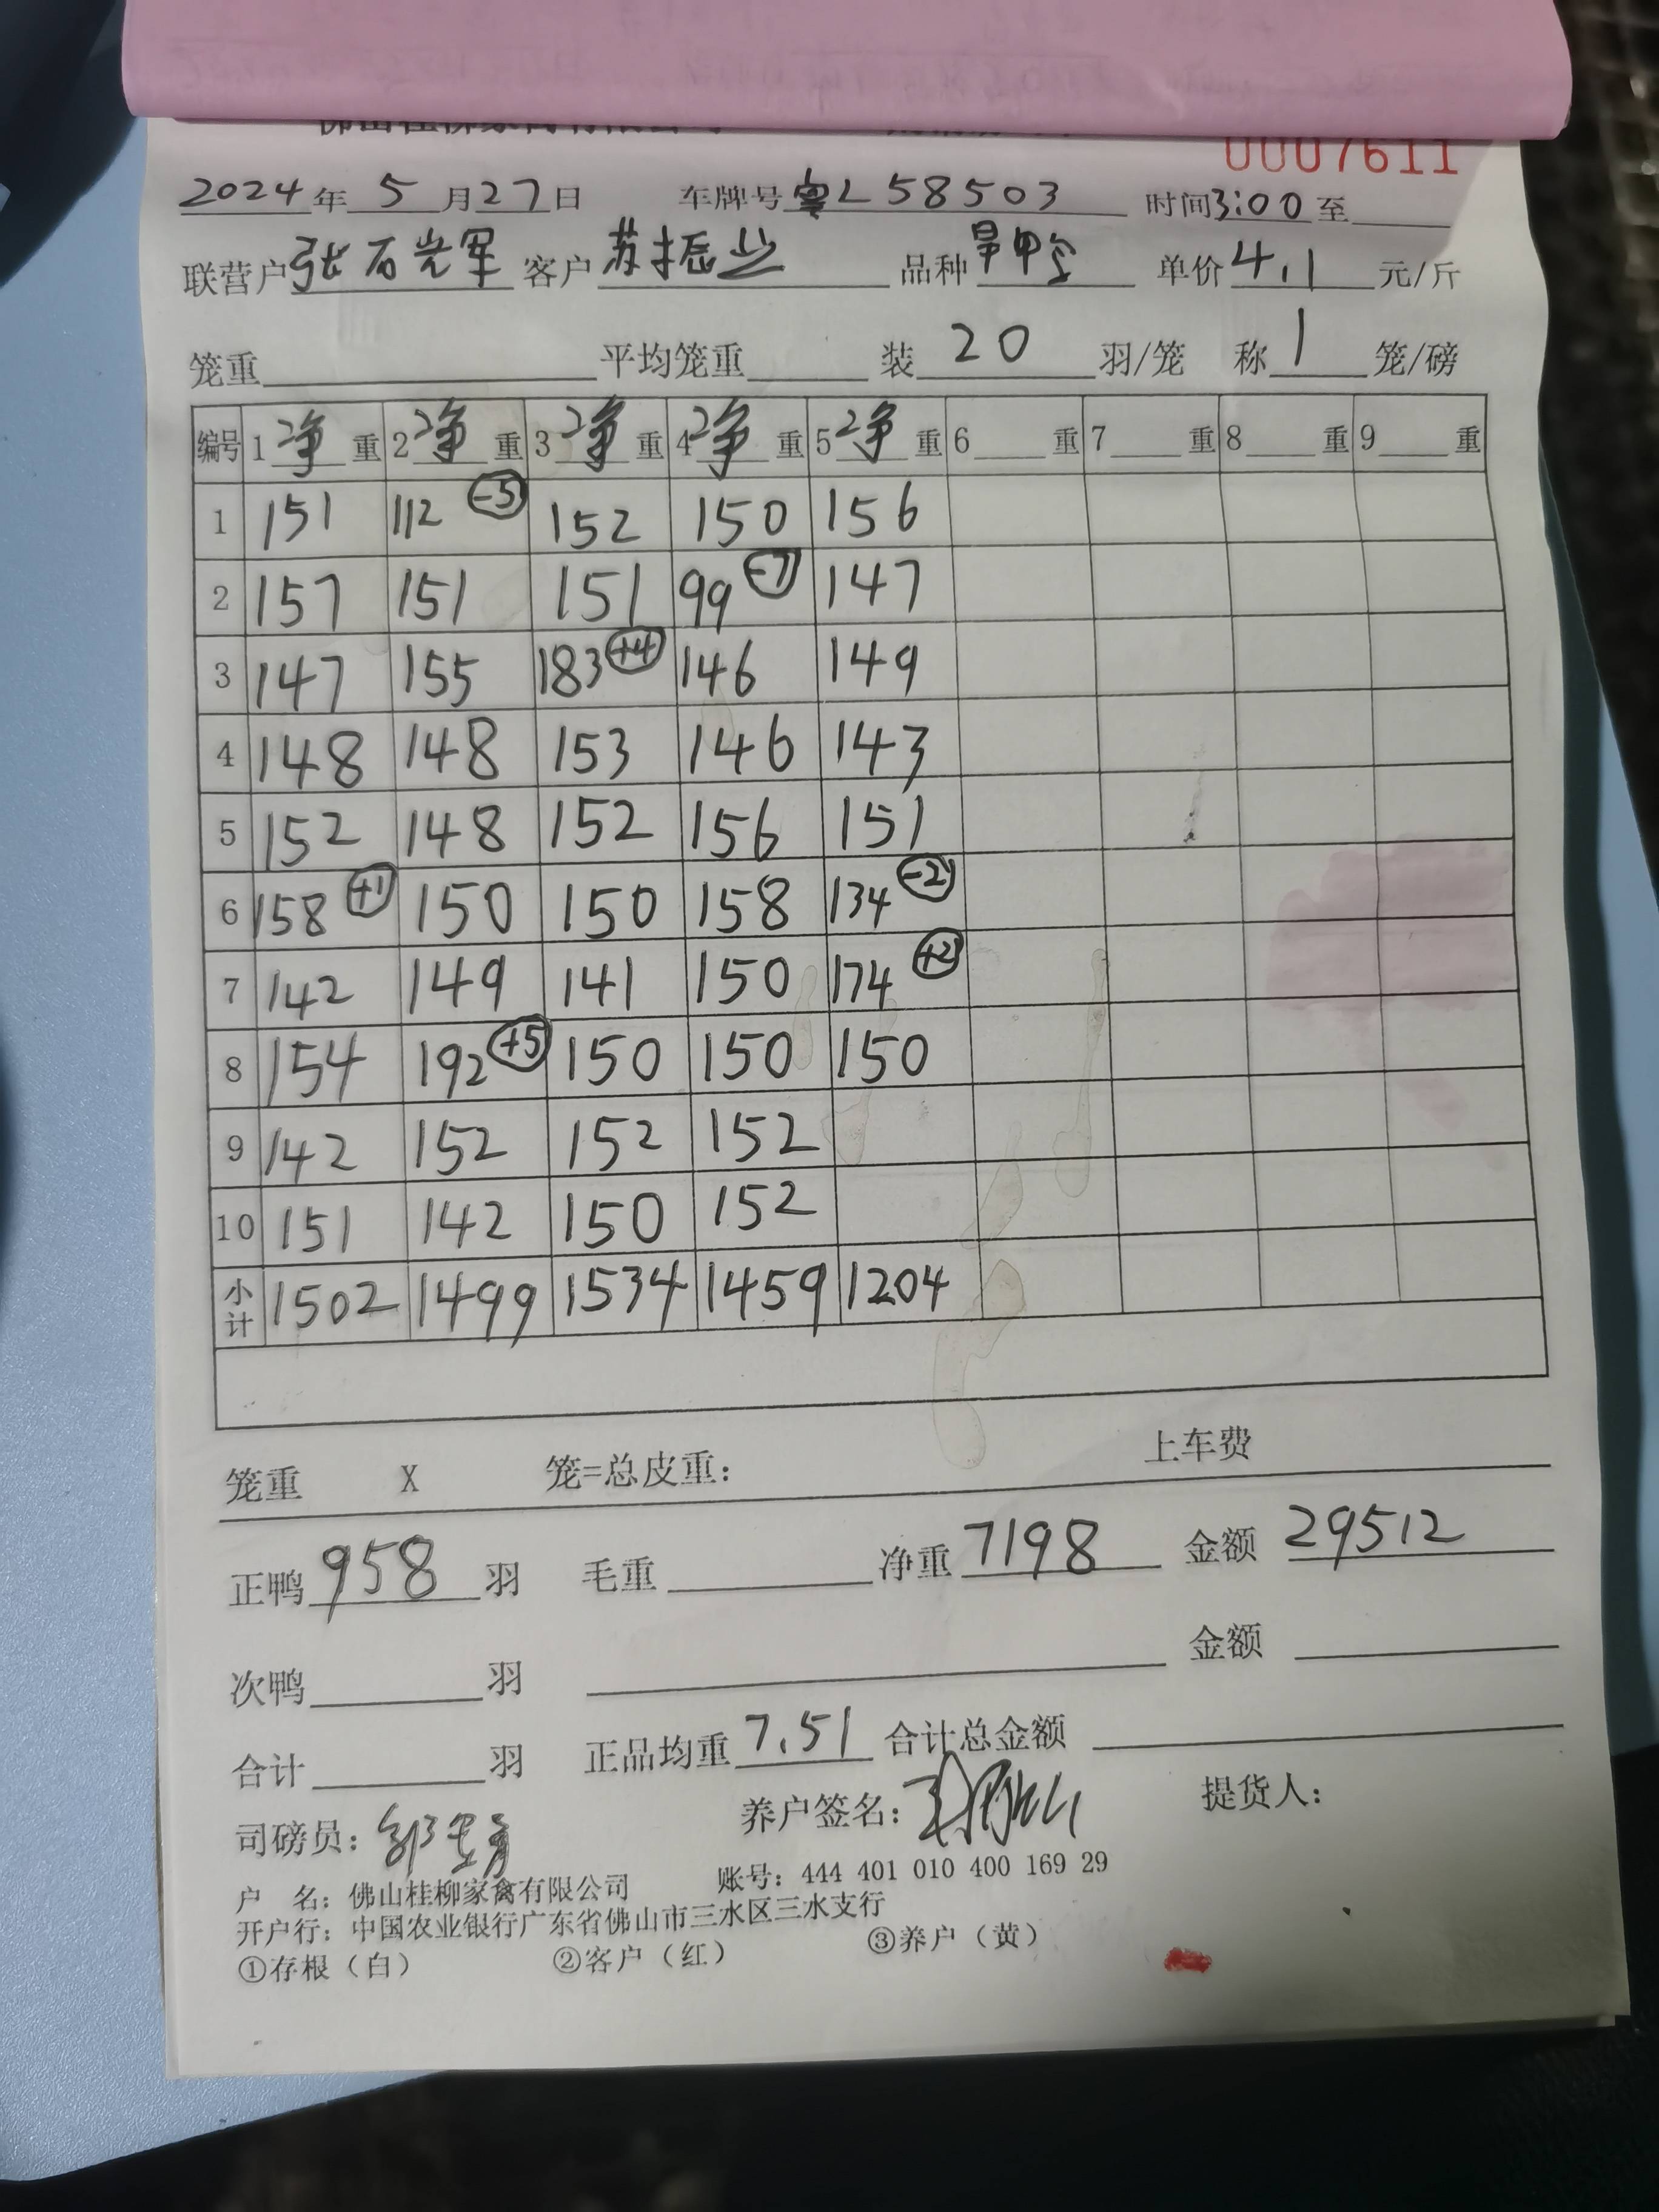 0007611
2024年 5 月27日 车牌号 粤L58503 时间3:00至
联营户 张石光军 客户 苏振业 品种 单价 4.1 元/斤
笼重 平均笼重 装 20 羽/笼 称 1 笼/磅
编号 1 净 重 2 净 重 3 净 重 4 净 重 5 净 重 6 重 7 重 8 重 9 重
1 151 112 -5 152 150 156
2 157 151 151 99 -7 147
3 147 155 183 +4 146 149
4 148 148 153 146 143
5 152 148 152 156 151
6 158 +1 150 150 158 134 -2
7 142 149 141 150 174 +2
8 154 192 +5 150 150 150
9 142 152 152 152
10 151 142 150 152
小计 1502 1499 1534 1459 1204
笼重 X 笼=总皮重: 上车费
正鸭 958 羽 毛重 净重 7198 金额 29512
次鸭 羽 金额
合计 羽 正品均重 7.51 合计总金额
司磅员: 养户签名: 提货人:
户 名: 佛山桂柳家禽有限公司 账号: 444 401 010 400 169 29
开户行: 中国农业银行广东省佛山市三水区三水支行
①存根(白) ②客户(红) ③养户(黄)